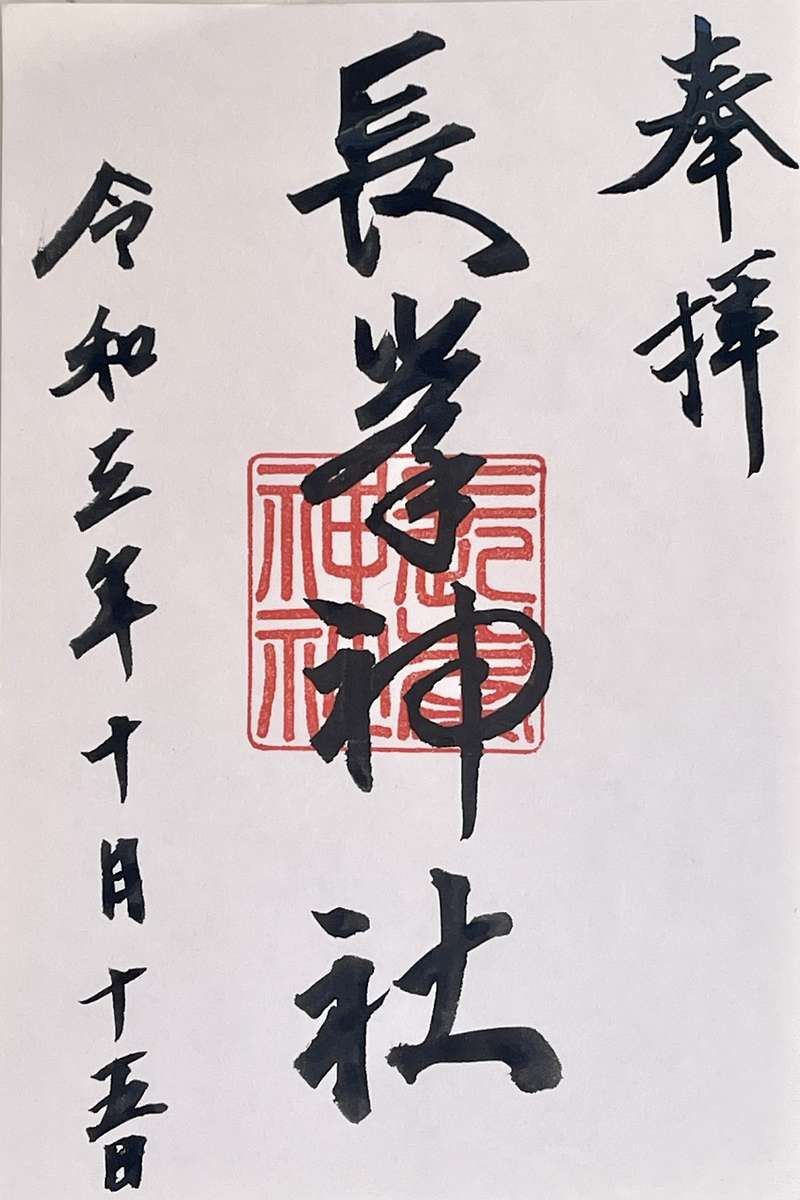 奉拝
長峯神社
長峯神社
令和三年十月十五日